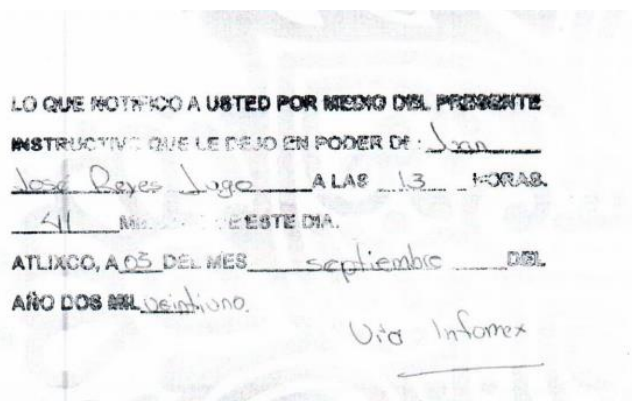 LO QUE NOTIFICO A USTED POR MEDIO DEL PRESENTE
INSTRUCTIVO QUE LE DEJO EN PODER DE: Juan
José Reyes Lugo A LAS 13 HORAS.
41 DE ESTE DIA.
ATLIXCO, A 03 DEL MES septiembre DEL
AÑO DOS MIL veintiuno.
Vía Infomex